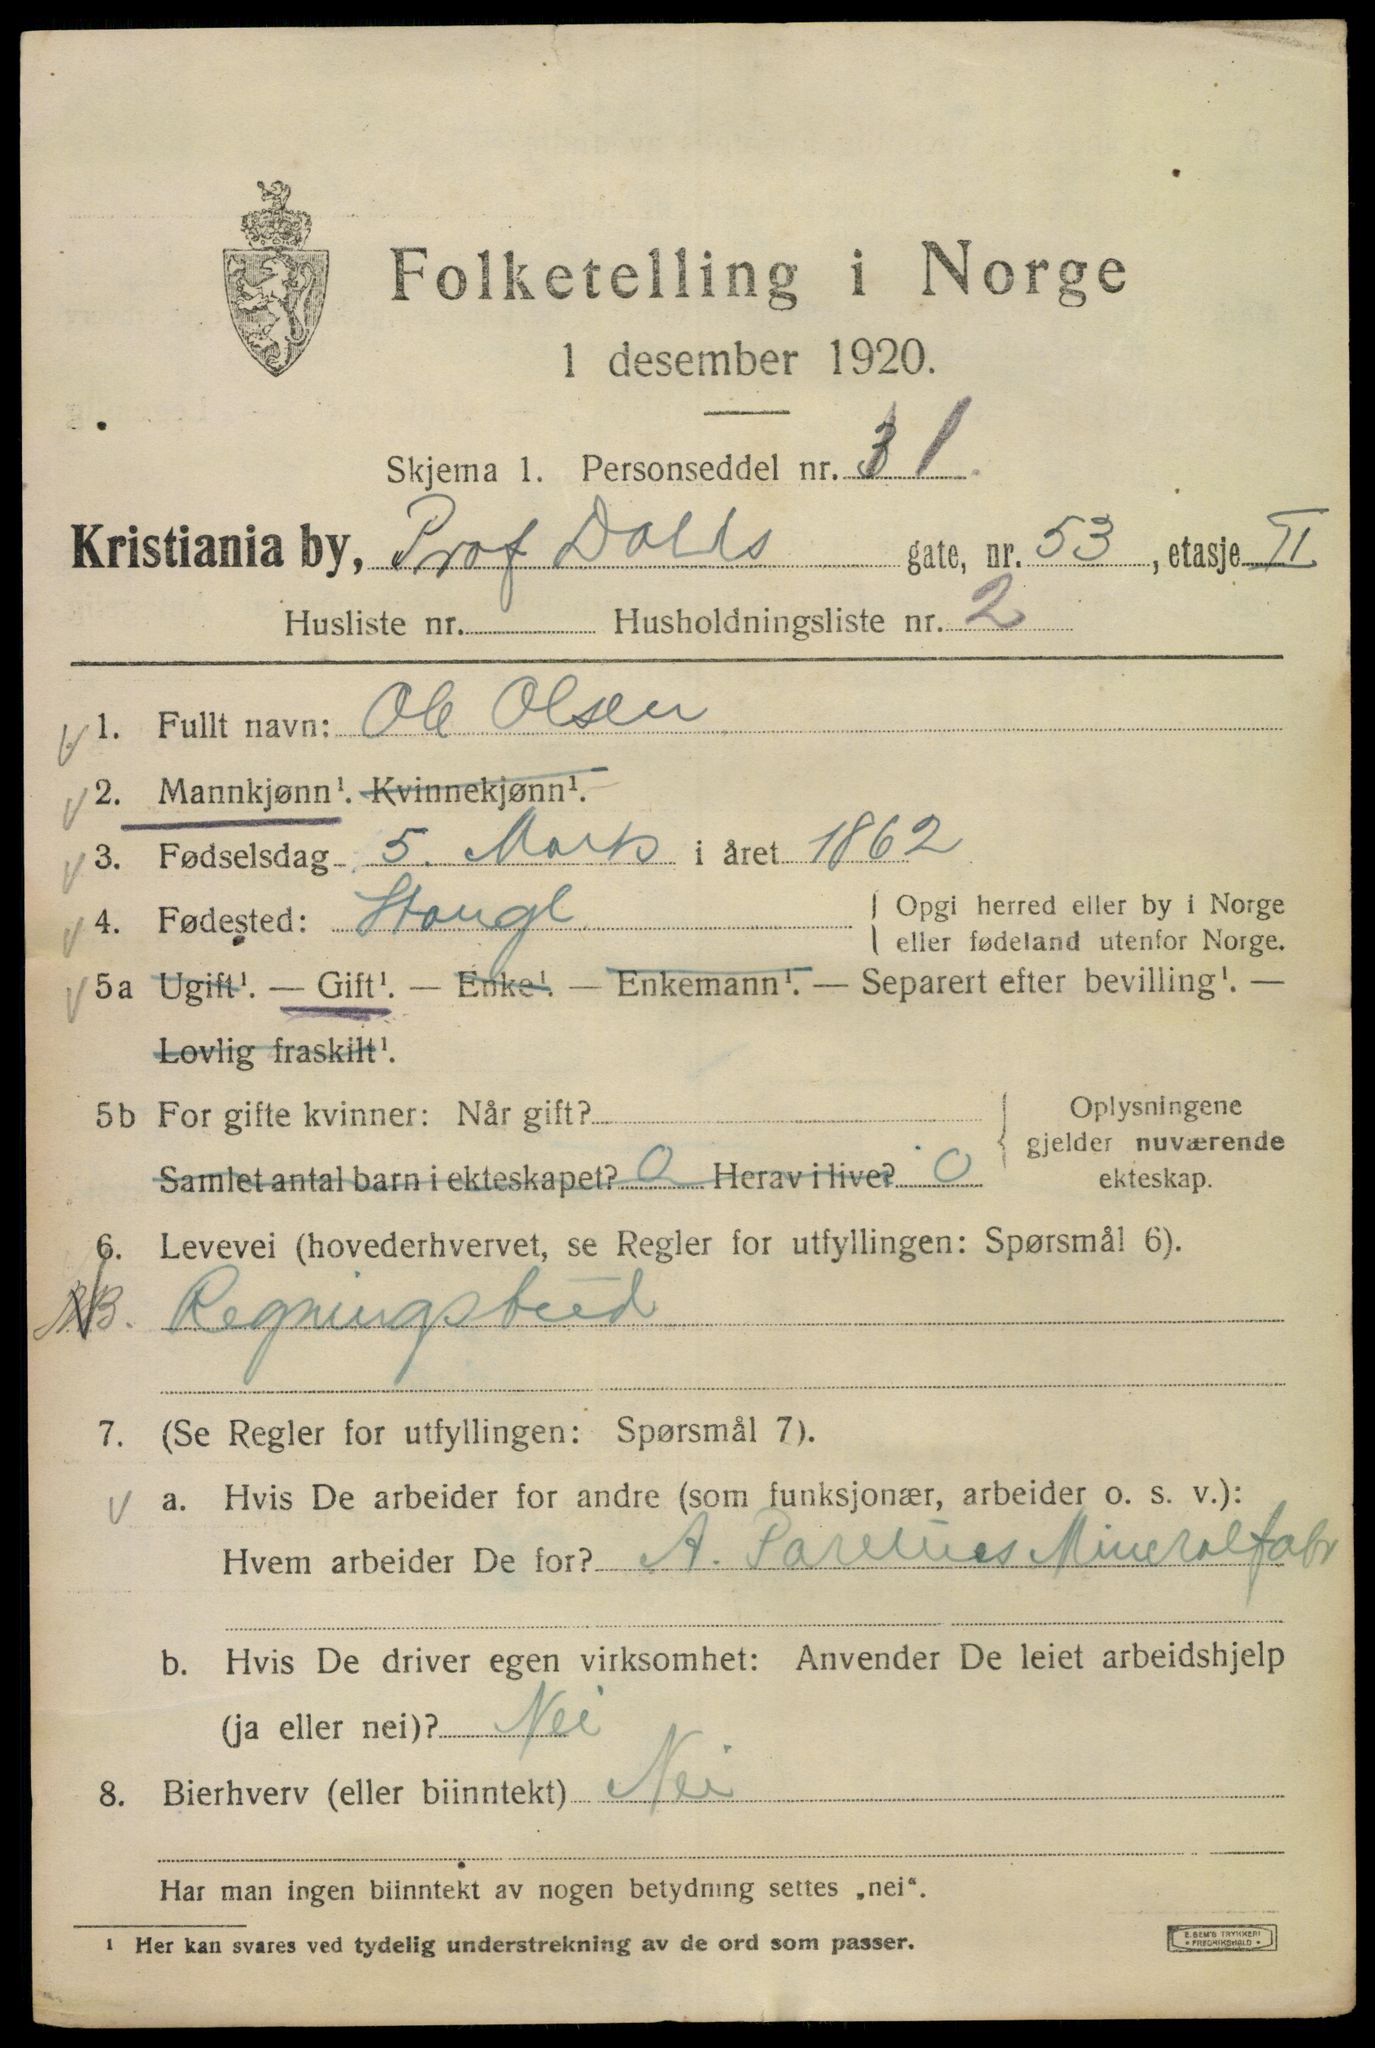 Folketelling i Norge
1 desember 1920.
Skjema 1. Personseddel nr. 1
Kristiania by, Prof Dahls gate, nr. 53, etasje II
Husliste nr. Husholdningsliste nr. 2
1. Fullt navn: Ole Olsen
2. Mannkjønn¹. Kvinnekjønn¹.
3. Fødselsdag 5. Marts i året 1862
4. Fødested: Stange { Opgi herred eller by i Norge
eller fødeland utenfor Norge.
5a Ugift¹. — Gift¹. — Enke¹. — Enkemann¹. — Separert efter bevilling¹. —
Lovlig fraskilt¹.
5b For gifte kvinner: Når gift?
Samlet antal barn i ekteskapet? 0 Herav i live? 0
Oplysningene
gjelder nuværende
ekteskap.
6. Levevei (hovederhvervet, se Regler for utfyllingen: Spørsmål 6).
Regningsbud
7. (Se Regler for utfyllingen: Spørsmål 7).
a. Hvis De arbeider for andre (som funksjonær, arbeider o. s. v.):
Hvem arbeider De for? A. Mineralfabr
b. Hvis De driver egen virksomhet: Anvender De leiet arbeidshjelp
(ja eller nei)? Nei
8. Bierhverv (eller biinntekt) Nei
Har man ingen biinntekt av nogen betydning settes „nei“.
¹ Her kan svares ved tydelig understrekning av de ord som passer.
E. SEM'S TRYKKERI
• FREDRIKSHALD •